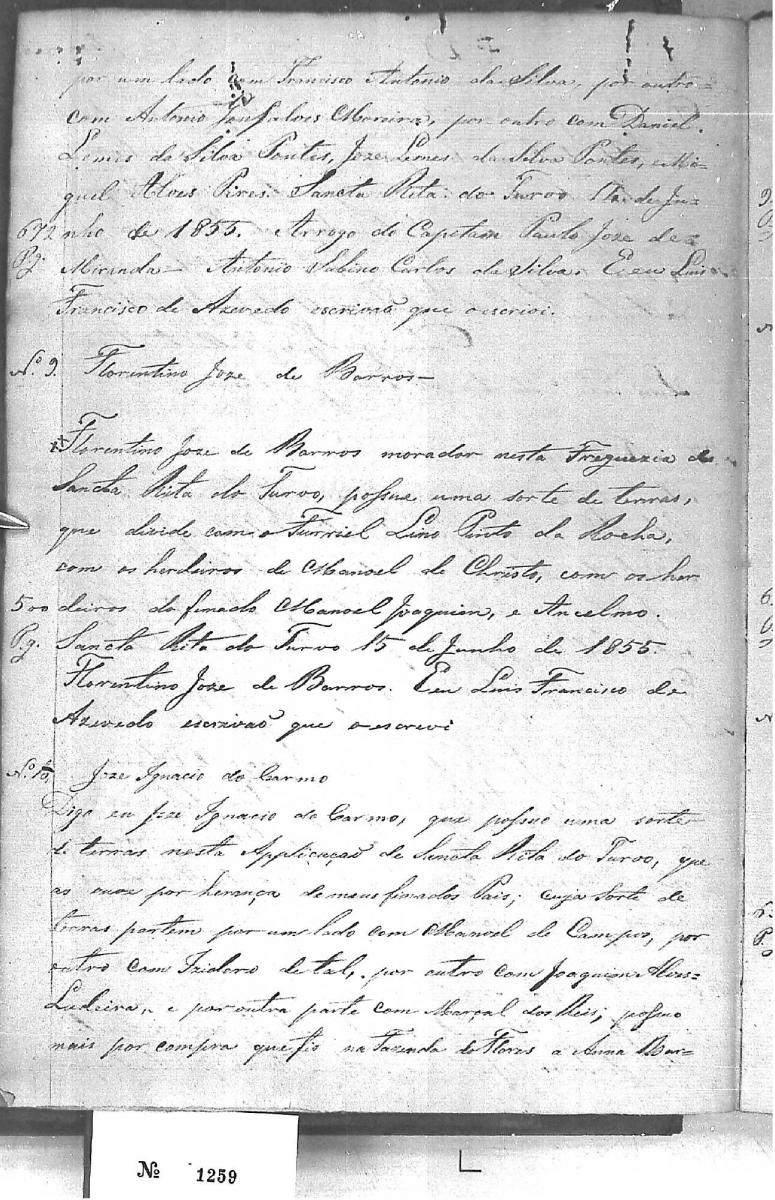 por um lado com Francisco Antonio da Silva, por outro
com Antonio Gonsalves Moreira, por outro com Daniel
Lemes da Silva Pontes, Joze Lemes da Silva Pontes, e Mi-
guel Alves Pires. Sancta Rita do Turvo de Ju-
672 nho de 1855. Arrogo do Capitam Paulo Joze de
Pg. Miranda Antonio Sabino Carlos da Silva. E eu Luis
Francisco de Azevedo escrivaõ que o escrivi.
N.º 9. Florentino Joze de Barros
Florentino Joze de Barros morador nesta Freguezia de
Sancta Rita do Turvo, possue uma sorte de terras,
que divide com o Furriel Lino Pinto da Rocha,
com os herdeiros de Manoel de Christo, com os her
500 deiros do finado Manoel Joaquim, e Ancelmo.
P.g. Sancta Rita do Turvo 15 de Junho de 1855.
Florentino Joze de Barros. E eu Luis Francisco de
Azevedo escrivaõ que o escrevi
N.º 10 Joze Ignacio do Carmo
Digo eu Joze Ignacio do Carmo, que possuo uma sorte
de terras nesta Applicaçaõ de Sancta Rita do Turvo, que
as ouve por herança de meus finados Pais; cuja sorte de
terras partem por um lado com Manoel de Campos, por
outro com Izidoro de tal, por outro com Joaquim Alves
Ladeira, e por outra parte com Marçal dos Reis; possuo
mais por compra que fis na Fazenda de Flores a Anna Bar-
Nº 1259